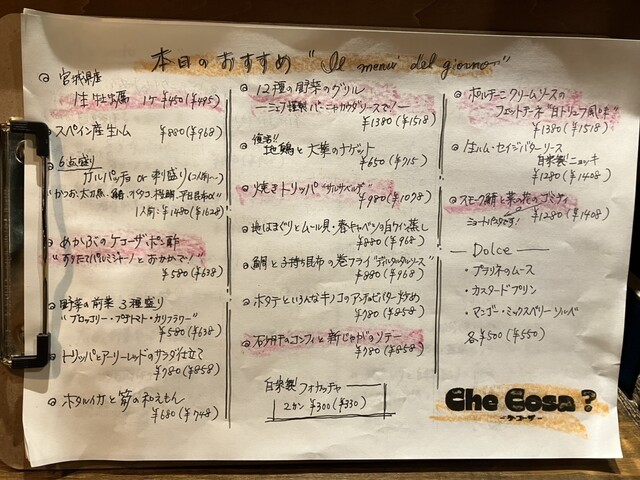 本日のおすすめ "Il menu' del giorno"
◎ 宮城県産
生牡蠣 1ケ ¥450(¥495)
◎ スペイン産生ハム
¥880(¥968)
◎ 6点盛り
カルパッチョ or 刺盛り(2人前〜)
1人前: ¥1480(¥1628)
◎ めかぶのケコーザポン酢
"おろしたてパルミジャーノとおかかで!"
¥580(¥638)
◎ 野菜の前菜 3種盛り
"ブロッコリー・プチトマト・カリフラワー"
¥580(¥638)
◎ トリッパとアーリーレッドのサラダ仕立て
¥780(¥858)
◎ ホタルイカと筍の和えもん
¥680(¥748)
◎ 12種の野菜のグリル
―シェフ謹製バーニャカウダソースで!―
¥1380(¥1518)
◎ 復活!!
地鶏と大葉のナゲット
¥650(¥715)
◎ 焼きトリッパ "サルサベルデ"
¥980(¥1078)
◎ 地はまぐりとムール貝・春キャベツの白ワイン蒸し
¥880(¥968)
◎ 鯛と子持ち昆布の巻フライ "タルタルソース"
¥880(¥968)
◎ ホタテといろんなキノコのアンチョビバター炒め
¥780(¥858)
◎ 石ガキ貝のコンフィと新じゃがのソテー
¥780(¥858)
自家製フォカッチャ
2カン ¥300(¥330)
◎ ポルチーニクリームソースの
フェットチーネ "白トリュフ風味"
¥1380(¥1518)
◎ 生ハム・セイジバターソース
自家製!ニョッキ
¥1280(¥1408)
◎ スモーク鯖と菜の花のゴミティ
ショートパスタです! ¥1280(¥1408)
― Dolce ―
・プラリネのムース
・カスタードプリン
・マンゴー・ミックスベリー ソルベ
各¥500(¥550)
Che Cosa?
-ケコーザ-